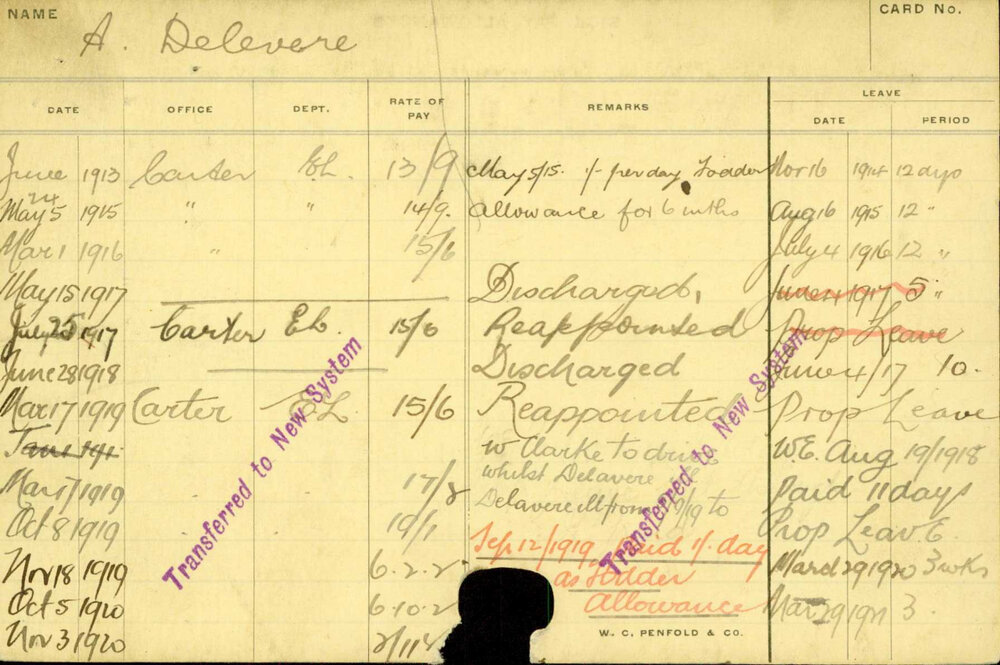 NAME A. Delevere CARD No.
LEAVE
DATE OFFICE DEPT. RATE OF PAY REMARKS DATE PERIOD
June 1913 Carter EL. 13/9 May 5/15. 1/- per day Fodder Nov 16 1914 12 days
24
May 5 1915 " " 14/9. Allowance for 6 mths Aug 16 1915 12 "
Mar 1 1916 " 15/6 July 4 1916 12 "
May 15 1917 Discharged, June 4 1917 5 "
July 25 1917 Carter EL. 15/6 Reappointed Prop Leave
June 28 1918 Discharged June 4/17 10.
Mar 17 1919 Carter EL 15/6 Reappointed Prop Leave
W Clarke to drive W.E. Aug 19/1918
Mar 17 1919 17/8 whilst Delavere Paid 11 days
Oct 8 1919 19/1 Delavere ill from /19 to Prop Leave
Sep 12/1919, Paid 1/- day
Nov 18 1919 6.2.2 as Fodder March 29 1920 3 wks
Oct 5 1920 6.10.2 Allowance Mar 29 1921 3.
Nov 3 1920
Transferred to New System
Transferred to New System
W. C. PENFOLD & CO.